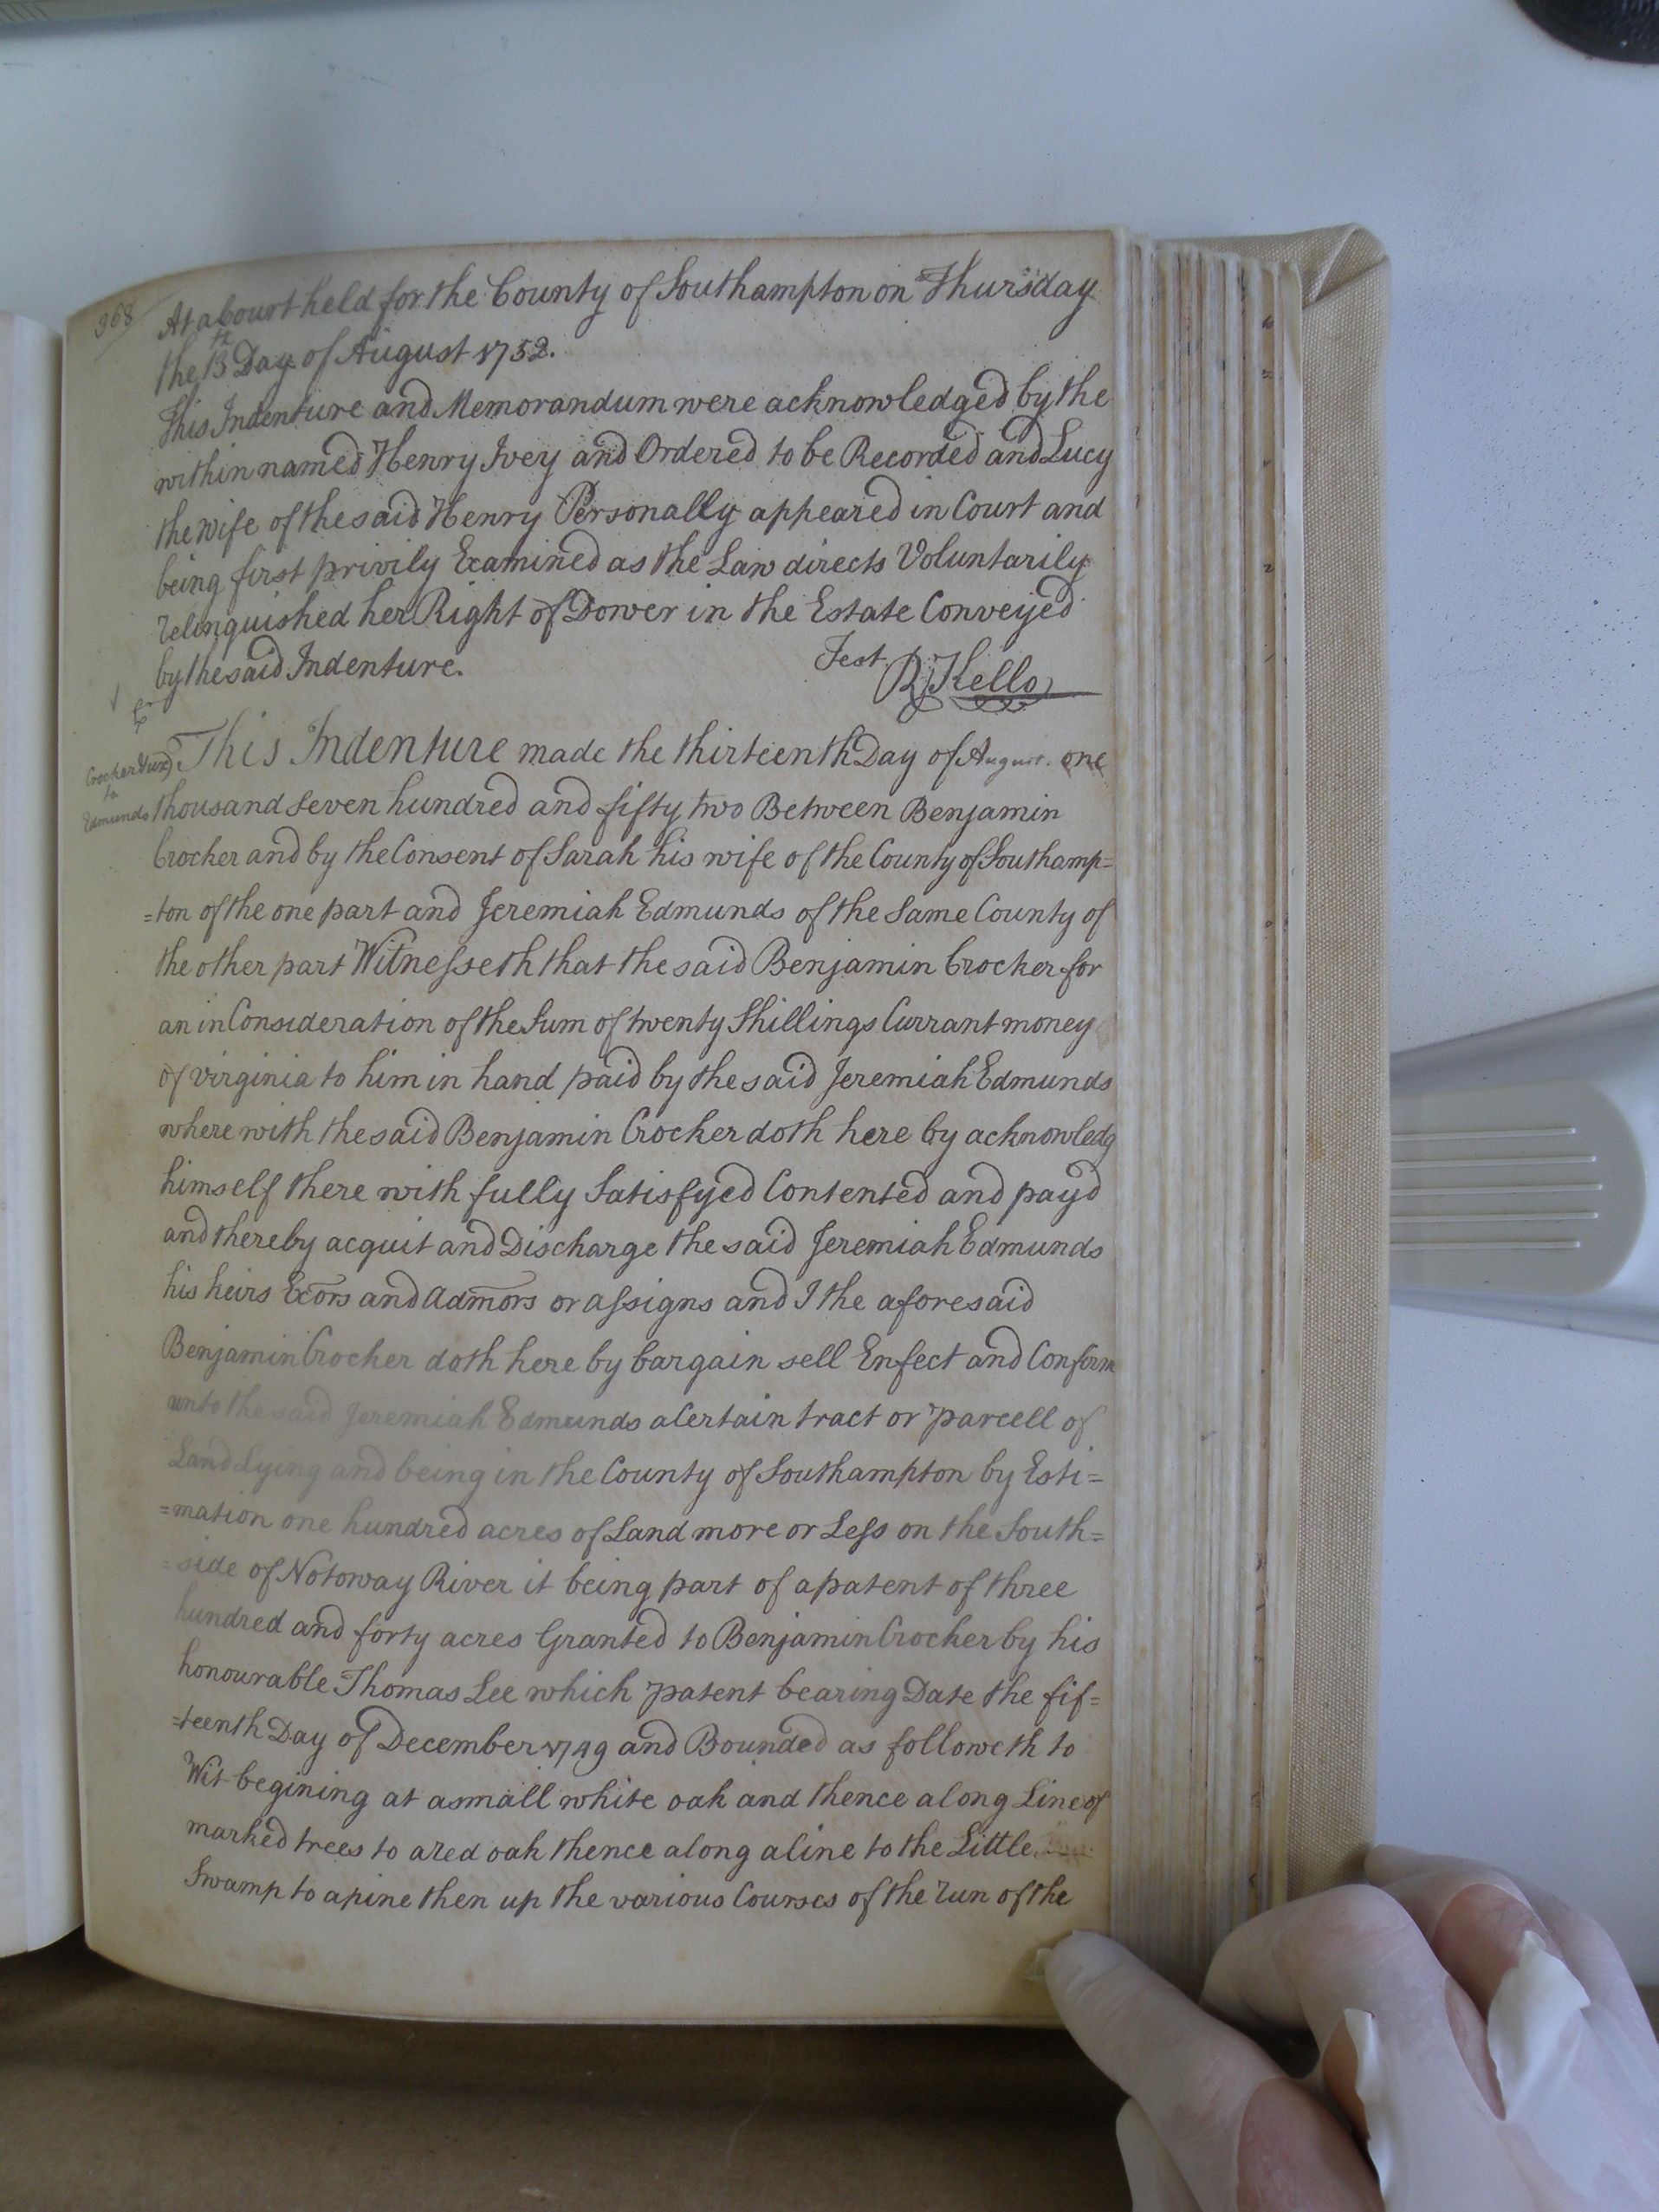 368
At a Court held for the County of Southampton on Thursday
the 13th Day of August 1752.
This Indenture and Memorandum were acknowledged by the
within named Henry Ivey and Ordered to be Recorded and Lucy
the wife of the said Henry Personally appeared in Court and
being first privily Examined as the Law directs Voluntarily
relinquished her Right of Dower in the Estate Conveyed
by the said Indenture.
Test
R Kello
Crocker & ux
to
Edmunds
This Indenture made the thirteenth Day of August one
thousand seven hundred and fifty two Between Benjamin
Crocker and by the Consent of Sarah his wife of the County of Southamp=
=ton of the one part and Jeremiah Edmunds of the Same County of
the other part Witnesseth that the said Benjamin Crocker for
an in Consideration of the Sum of twenty Shillings Currant money
of virginia to him in hand paid by the said Jeremiah Edmunds
where with the said Benjamin Crocker doth here by acknowledg
himself there with fully Satisfyed Contented and payd
and thereby acquit and Discharge the said Jeremiah Edmunds
his heirs Ecors and Admors or assigns and I the aforesaid
Benjamin Crocker doth here by bargain sell Enfect and Confirm
unto the said Jeremiah Edmunds a Certain tract or parcell of
Land Lying and being in the County of Southampton by Esti=
=mation one hundred acres of Land more or Less on the South=
=side of Notoway River it being part of a patent of three
hundred and forty acres Granted to Benjamin Crocker by his
honourable Thomas Lee which patent bearing Date the fif=
=teenth Day of December 1749 and Bounded as followeth to
Wit begining at a small white oak and thence along Line of
marked trees to a red oak thence along a line to the Little
Swamp to a pine then up the various Courses of the run of the